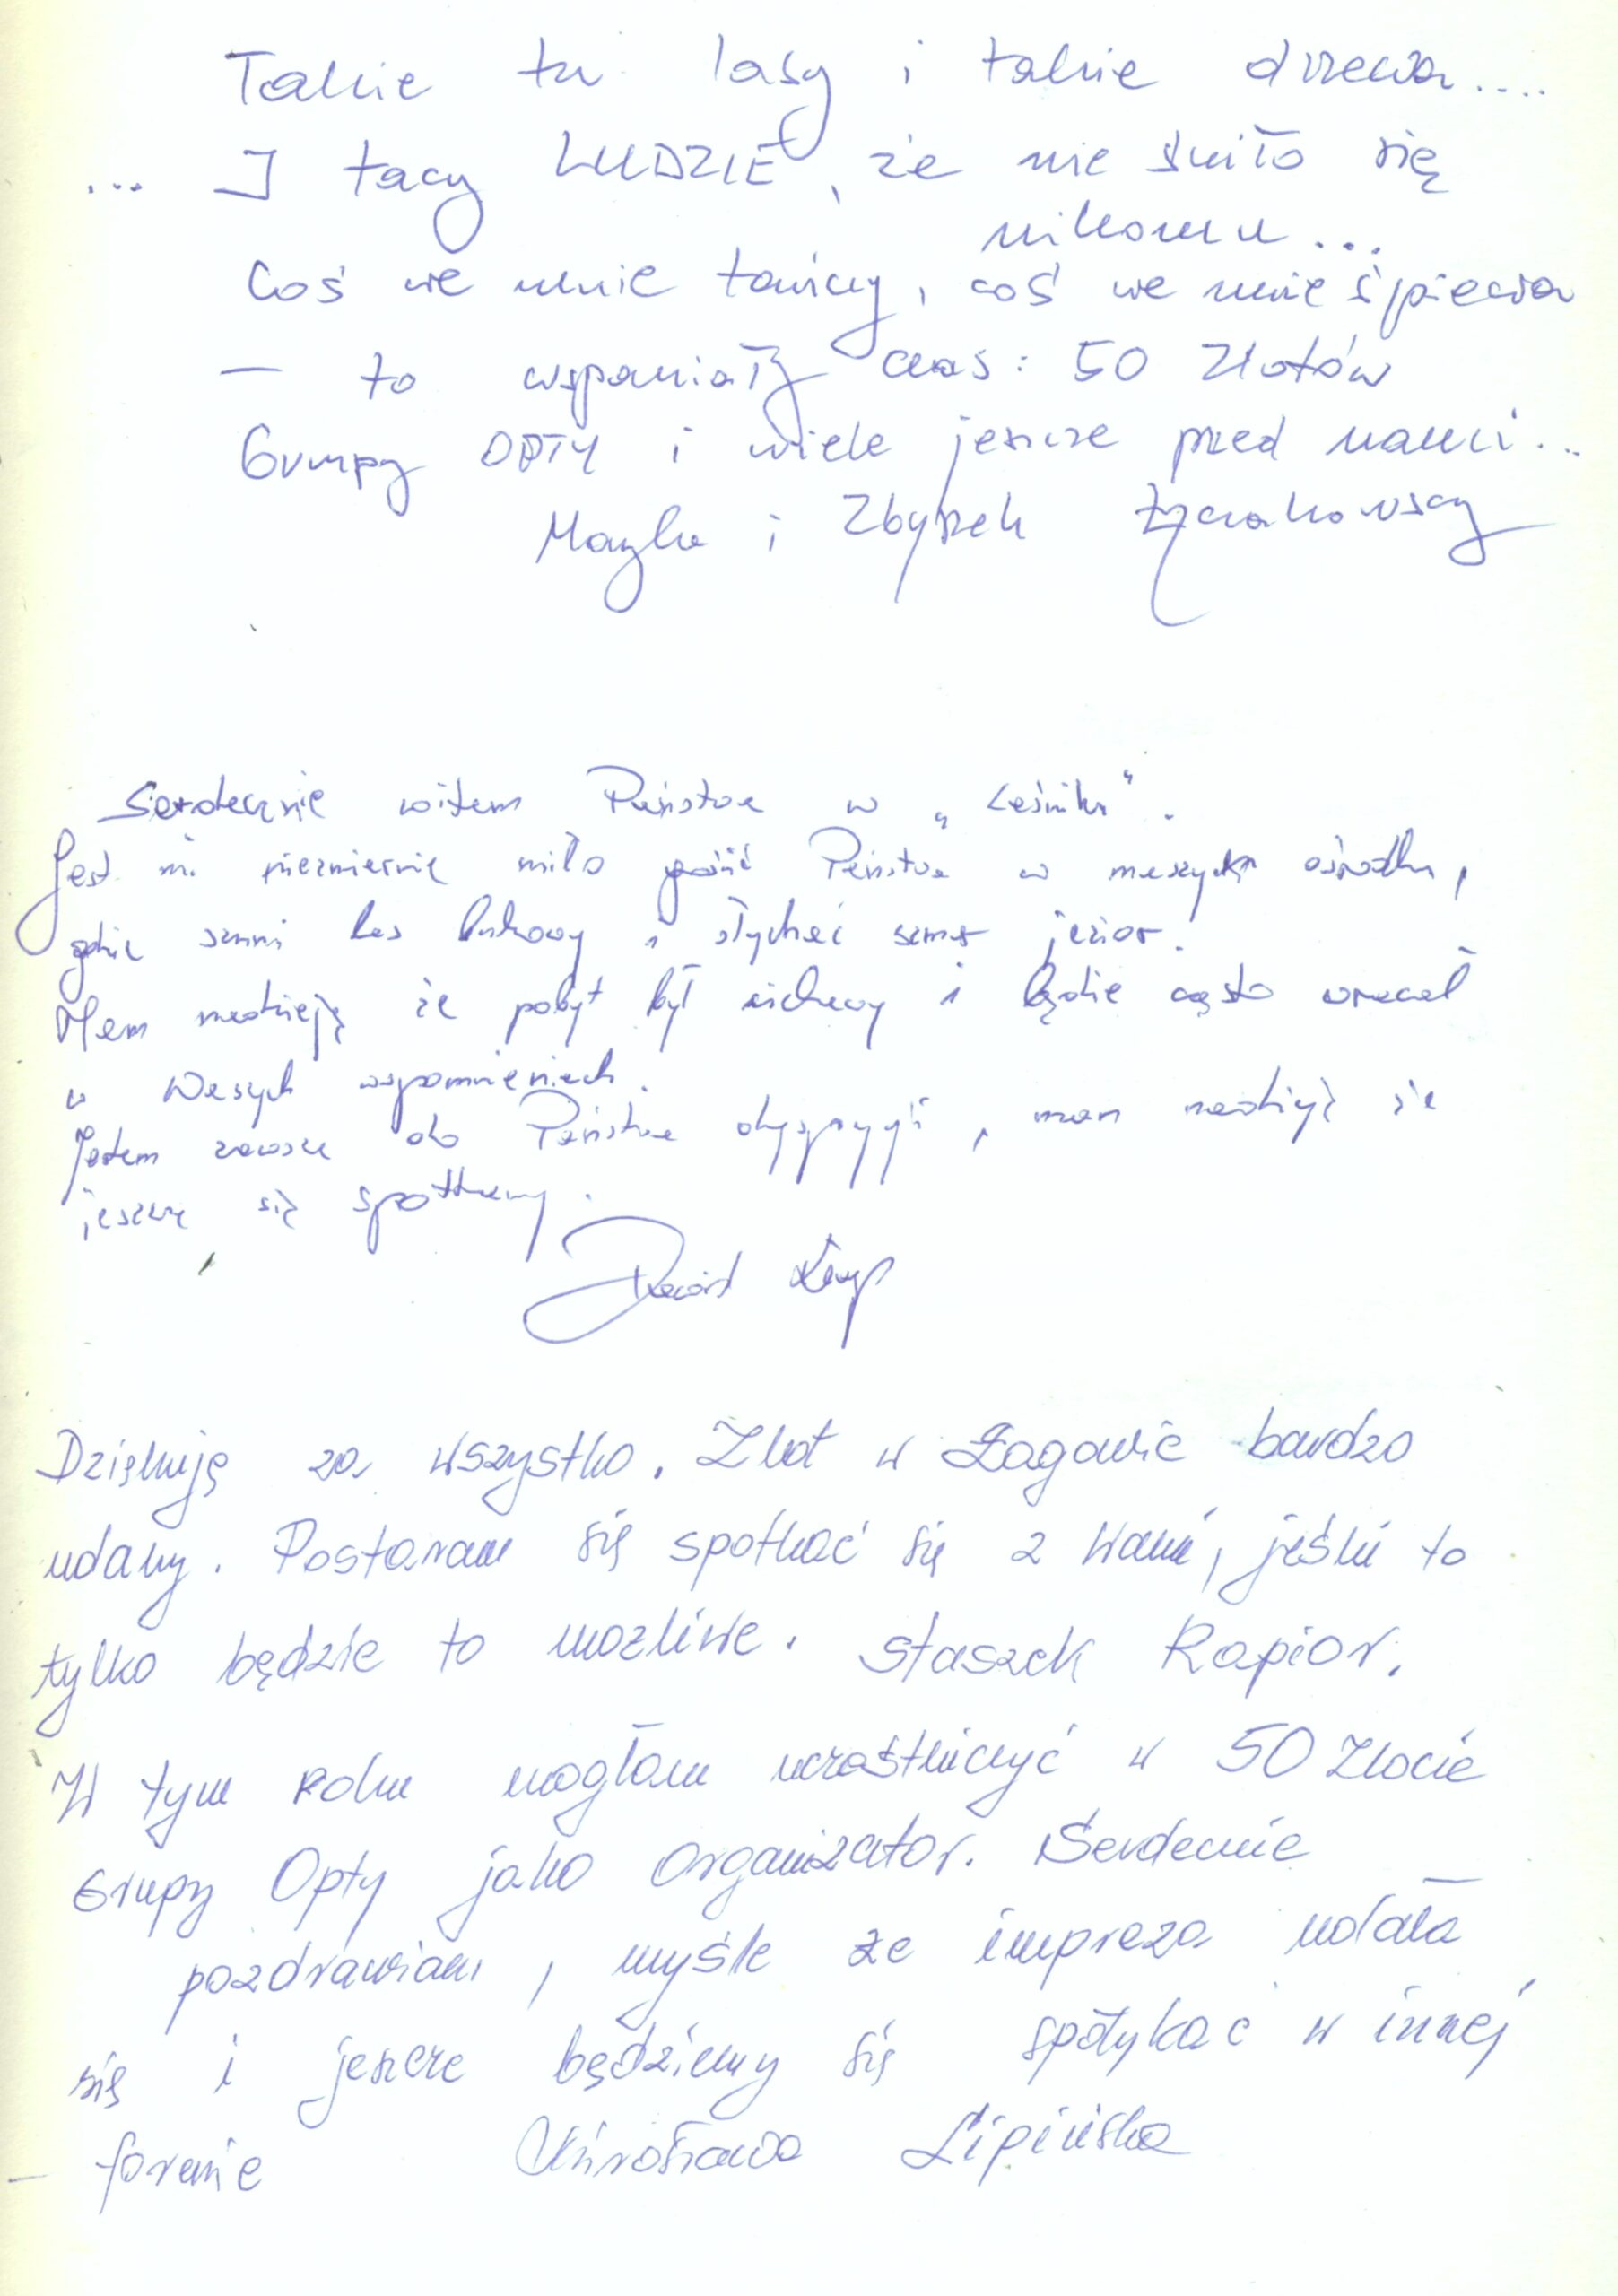 Takie tu lasy i takie drzewa....
... I tacy LUDZIE, że nie śniło się
nikomu...
Coś we mnie tańczy, coś we mnie śpiewa
— to wspaniały czas: 50 Zlotów
Grupy OPTY i wiele jeszcze przed nami...
i Zbyszek
Serdecznie witam Państwa w „Leśniku".
Jest mi niezmiernie miło gościć Państwa w naszym ośrodku,
gdzie szumi las bukowy i słychać szmer jezior.
Mam nadzieję że pobyt był ciekawy i będzie często wracał
w Waszych wspomnieniach.
Jestem zawsze do Państwa dyspozycji, mam nadzieję że
jeszcze się spotkamy.
Dziękuję za wszystko. Zlot w Łagowie bardzo
udany. Postaram się spotkać się z Wami, jeśli to
tylko będzie to możliwe. Staszek Rapior.
W tym roku mogłam uczestniczyć w 50 Zlocie
Grupy Opty jako organizator. Serdecznie
pozdrawiam, myślę że impreza udała
się i jeszcze będziemy się spotykać w innej
— formie Mirosława Lipińska